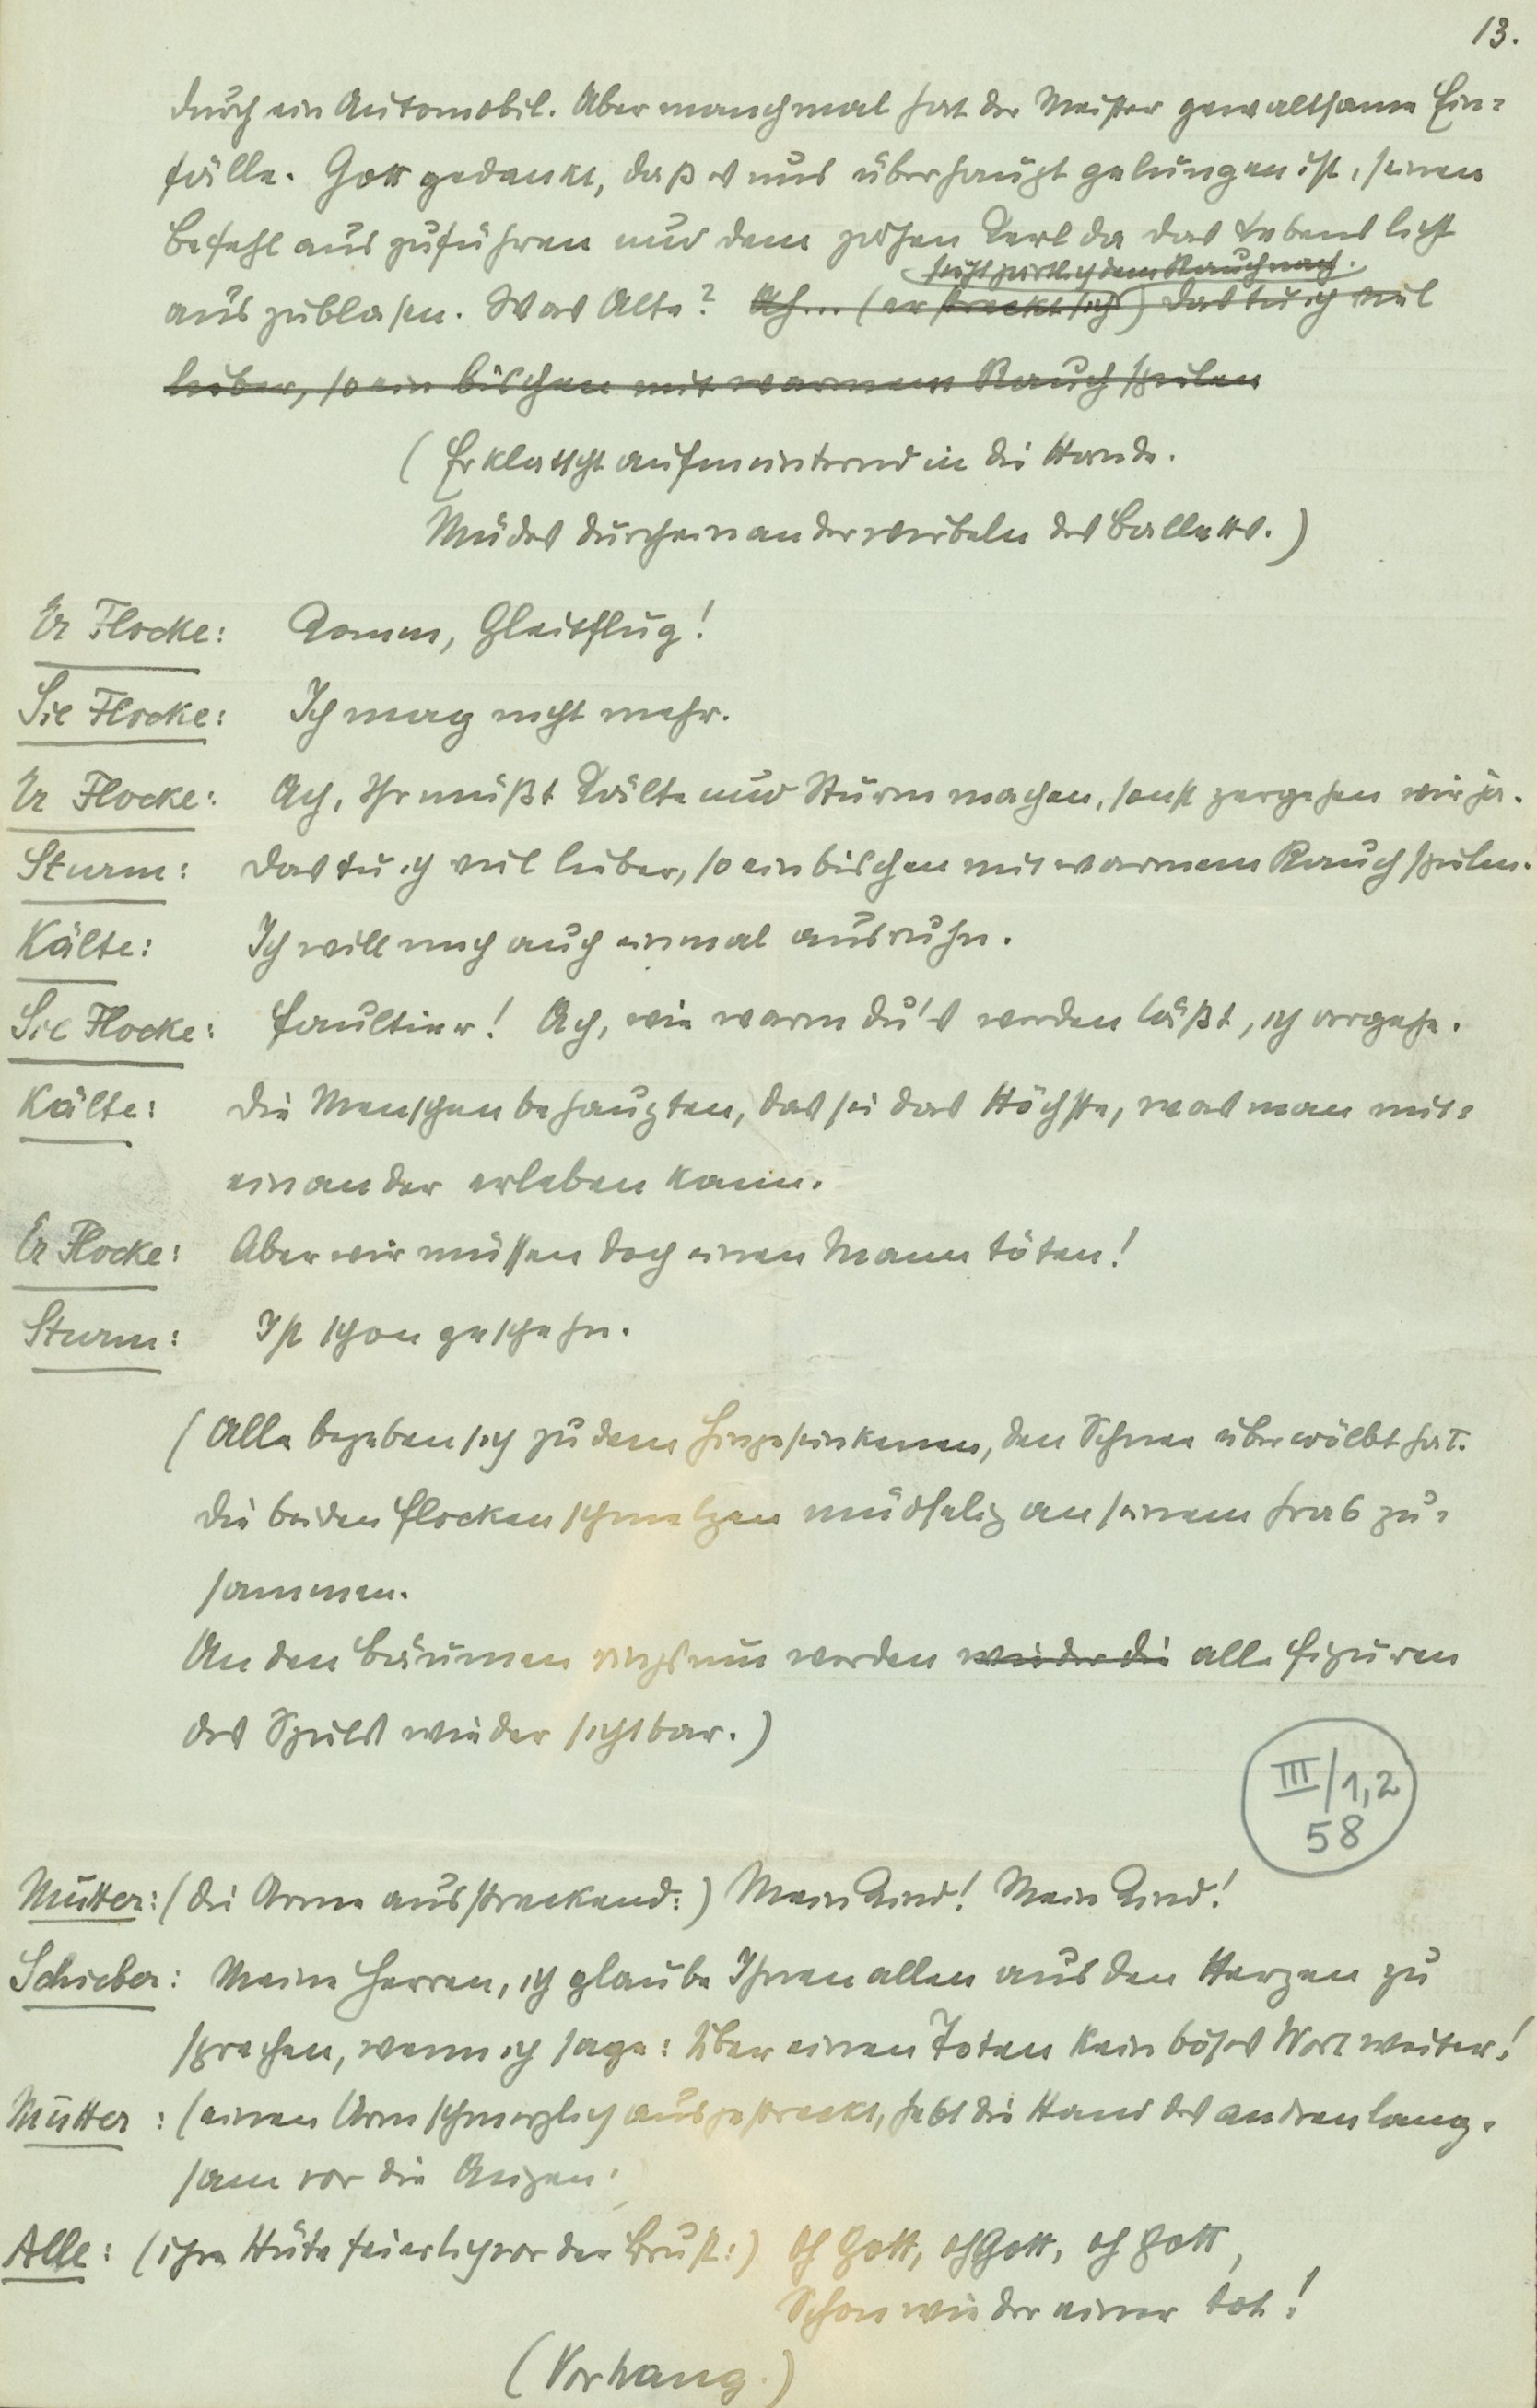 13.
durch ein Automobil. Aber manchmal hat der Meister gewaltsame Ein-
fälle. Gott gedankt, daß es uns überhaupt gelungen ist, seinen
Befehl auszuführen und dem zähen Kerl da das Lebenslicht
sieht zärtlich dem Rauch nach.
auszublasen. Was Alte? Ach... (er streckt sich) das tu ich viel
lieber, so ein bischen mit warmem Rauch spielen
(Er klatscht aufmunternd in die Hände.
Müdes durcheinanderwirbeln des Balletts.)
Er Flocke: Komm, Gleitflug!
Sie Flocke: Ich mag nicht mehr.
Er Flocke: Ach, Ihr müßt Kälte und Sturm machen, sonst zergehen wir ja.
Sturm: Das tu ich viel lieber, so ein bischen mit warmem Rauch spielen.
Kälte: Ich will mich auch einmal ausruhn.
Sie Flocke: Faultier! Ach, wie warm du's werden läßt, ich vergehe.
Kälte: Die Menschen behaupten, das sei das Höchste, was man mit-
einander erleben kann.
Er Flocke: Aber wir müssen doch einen Mann töten!
Sturm: Ist schon geschehn.
(Alle begeben sich zu dem Hingesunkenen, den Schnee überwölbt hat.
Die beiden Flocken schmelzen müdselig an seinem Grab zu-
sammen.
An den Bäumen ringsum werden wieder die alle Figuren
des Spiels wieder sichtbar.)
III/1,2
58
Mutter: (die Arme ausstreckend:) Mein Kind! Mein Kind!
Schieber: Meine Herren, ich glaube Ihnen allen aus den Herzen zu
sprechen, wenn ich sage: Über einen Toten kein böses Wort weiter!
Mutter: (einen Arm schmerzlich ausgestreckt, hebt die Hand des andren lang-
sam vor die Augen.
Alle: (ihre Hüte feierlich vor der Brust:) Oh Gott, oh Gott, oh Gott,
Schon wieder einer tot!
(Vorhang.)